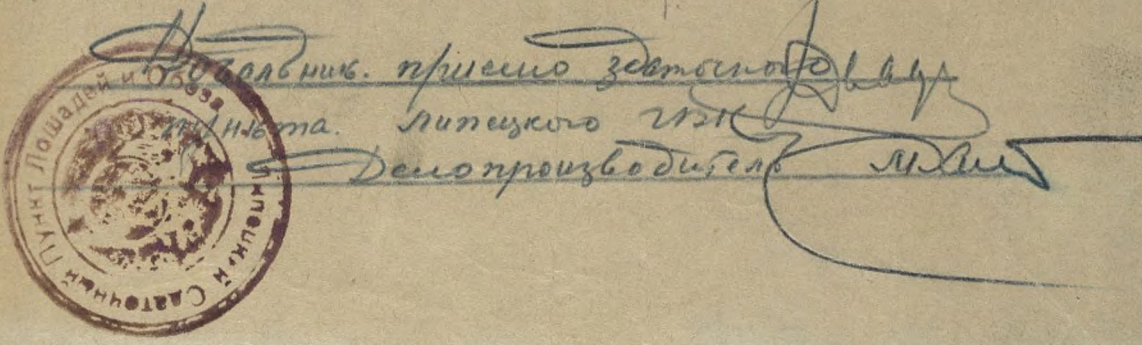 Начальник. приемо здаточного
пункта. Липецкого ГВК
Делопроизводитель
Липецкий Сдаточный Пункт Лошадей и Обоза